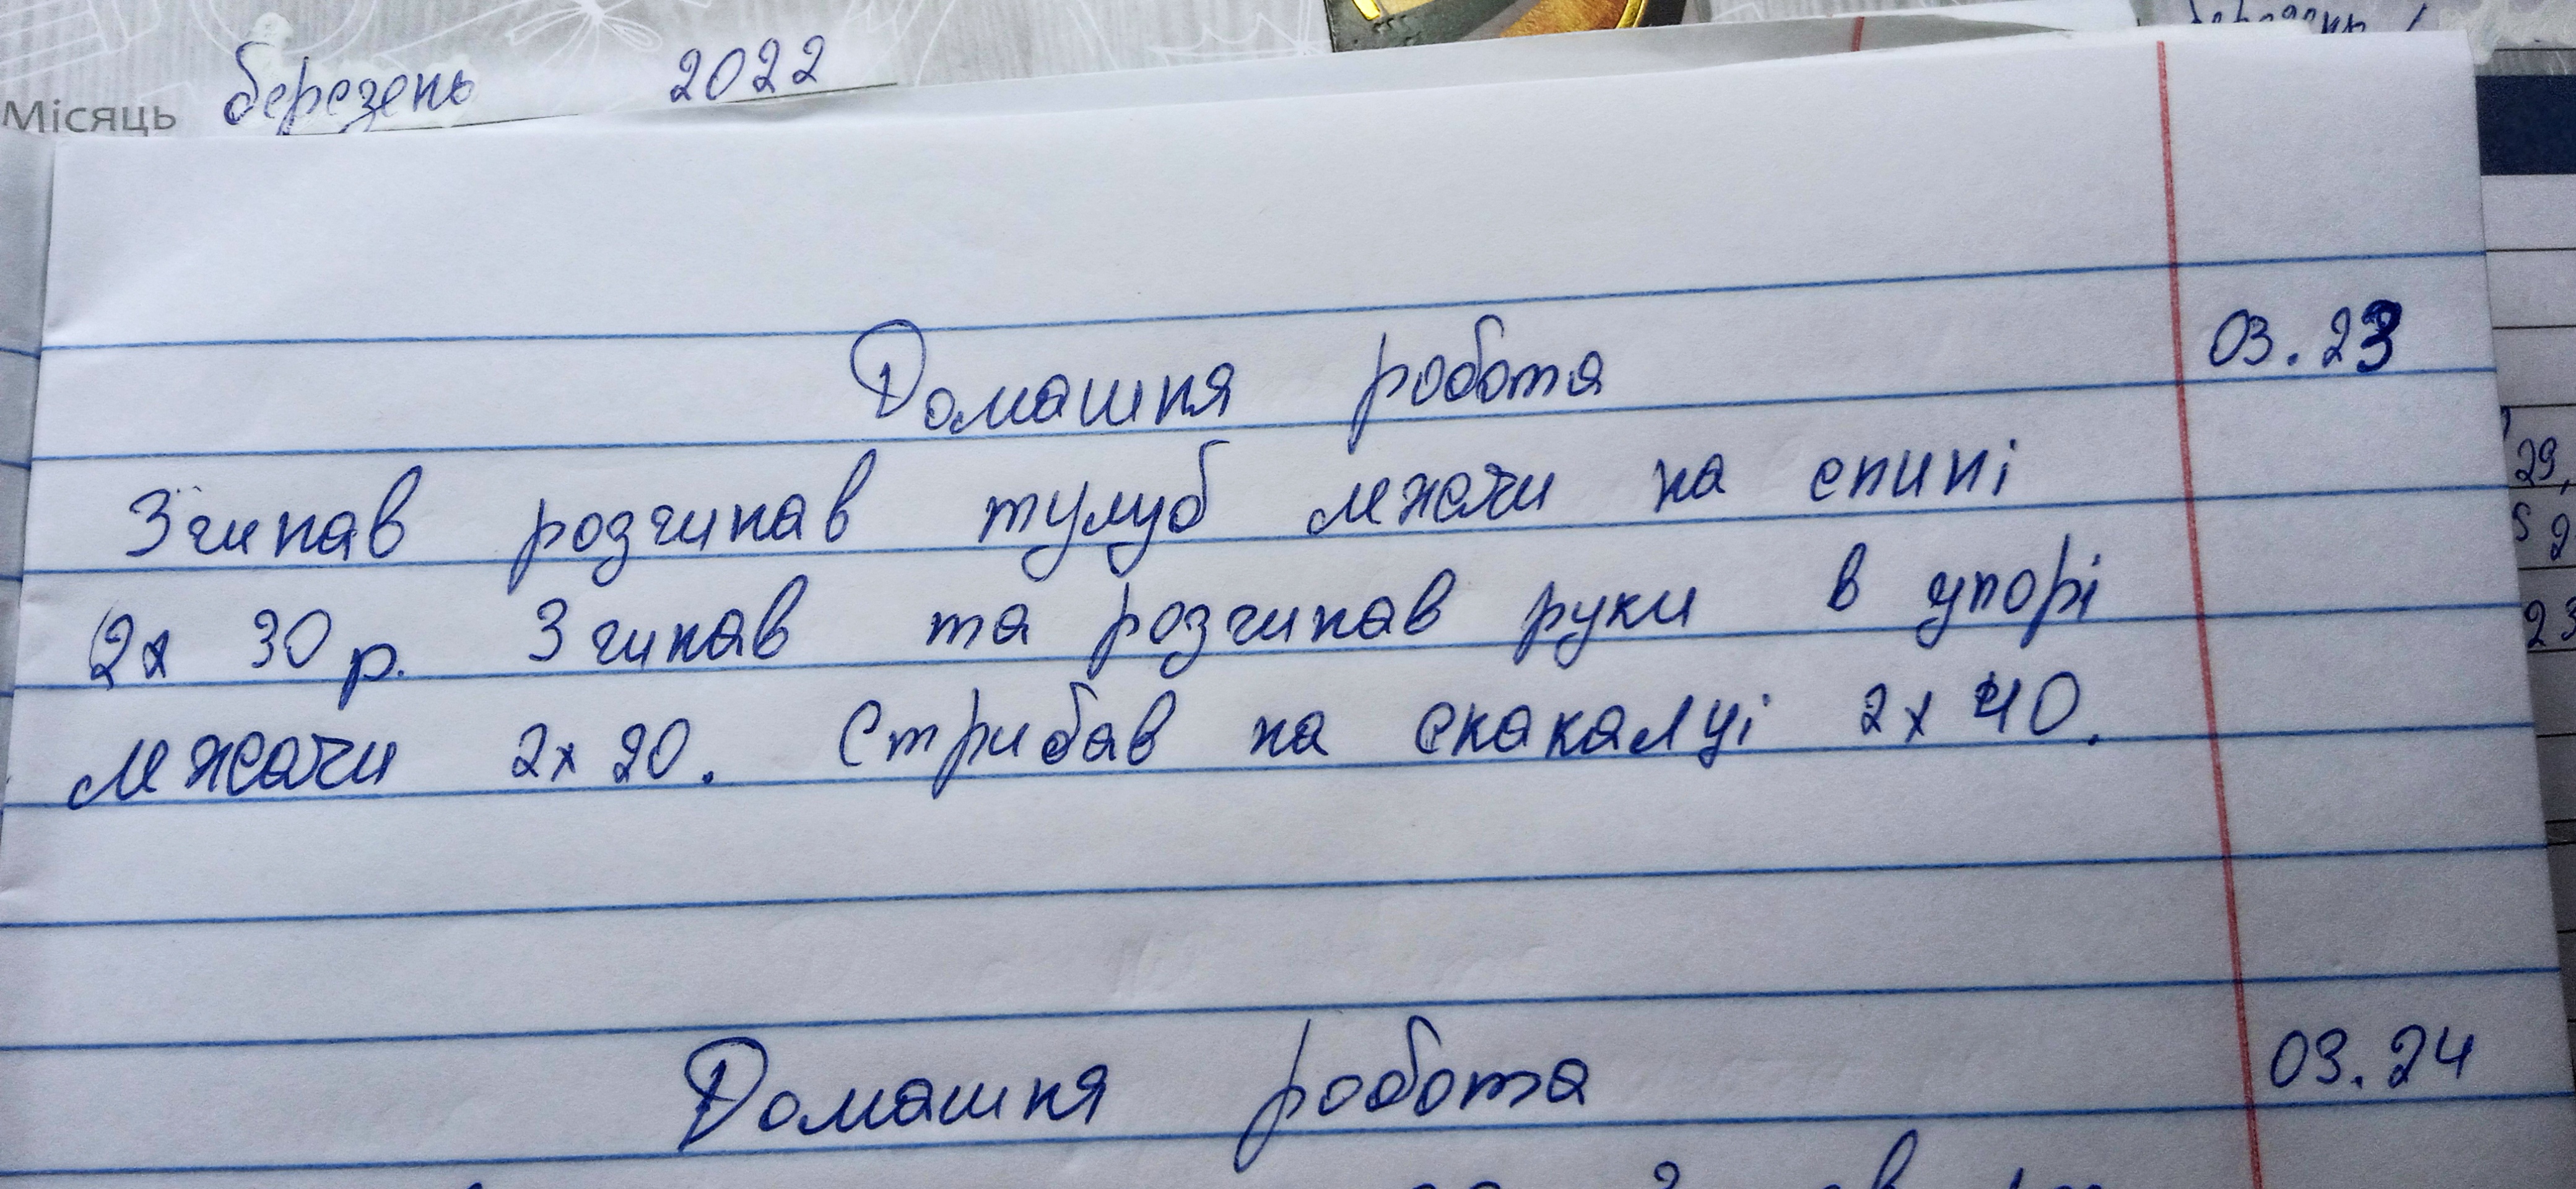 Місяць березень 2022
Домашня робота 03.23
Зчинав розчинав тулуб лежачи на спині
2х 30 р. Зчинав та розчинав руки в упорі
лежачи 2х 20. Стрибав на скакалці 2х 40.
Домашня робота 03.24